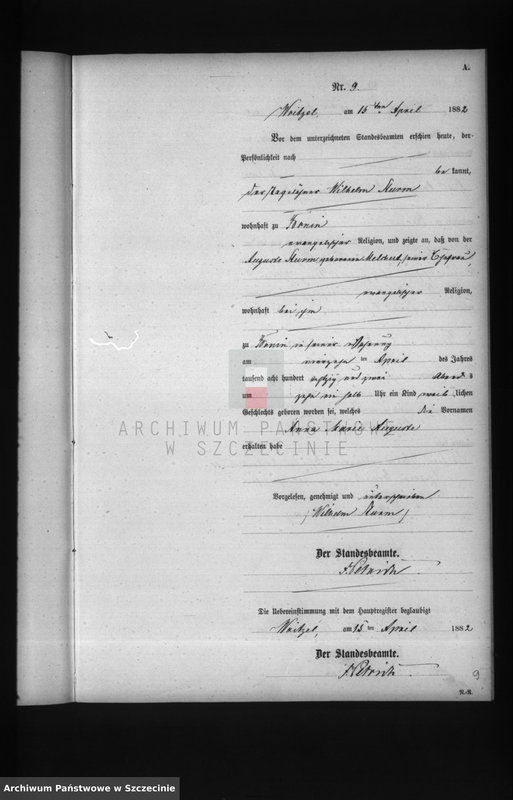 A.
Nr. 9.
Woitzel, am 15 ten April 1882
Vor dem unterzeichneten Standesbeamten erschien heute, der
Persönlichkeit nach
be kannt,
der Tagelöhner Wilhelm Sturm
wohnhaft zu Konin
evangelischer Religion, und zeigte an, daß von der
Auguste Sturm geborenen seiner Ehefrau
evangelischer Religion,
wohnhaft bei ihm
zu Konin in seiner Wohnung
am vierzehn ten April des Jahres
tausend acht hundert achtzig und zwei Abend s
um zehn ein halb Uhr ein Kind weib lichen
Geschlechts geboren worden sei, welches die Vornamen
Anna Marie Auguste
erhalten habe
ARCHIWUM PAŃSTWOWE
W SZCZECINIE
Vorgelesen, genehmigt und unterschrieben
Wilhelm Sturm
Der Standesbeamte.
Die Uebereinstimmung mit dem Hauptregister beglaubigt
Woitzel, am 15 ten April 1882
Der Standesbeamte.
9
R.-R.
Archiwum Państwowe w Szczecinie